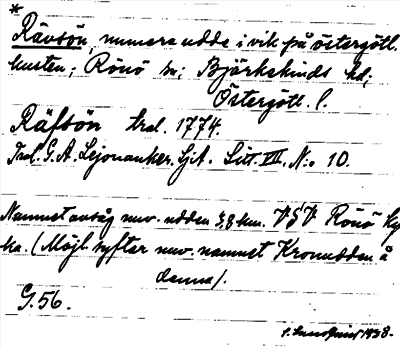 *
Rävsön, numera udde i vik på östergötl.
kusten; Rönö sn; Björkekinds hd;
Östergötl. l.
Räfsön tral. 1774.
Trol. G. A. Lejonanker. Sjit. Litt. VII. No 10.
Namnet ansåg nuv. udden 3,8 km. VSV Rönö ky
ka. (Möjl. syftar nuv. namnet Kronudden å
denna).
G. 56.
1938.